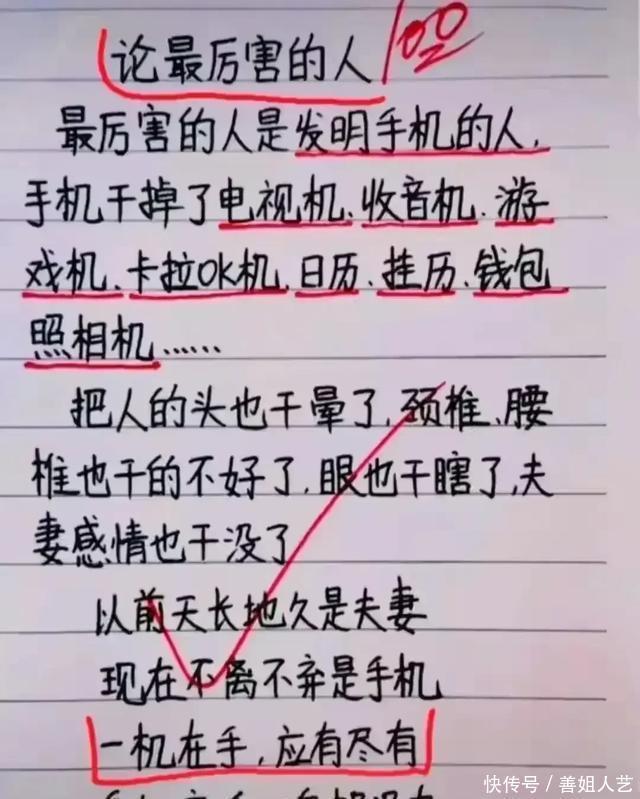 论最厉害的人
100
最厉害的人是发明手机的人,
手机干掉了电视机、收音机、游
戏机、卡拉OK机、日历、挂历、钱包
照相机......
把人的头也干晕了,颈椎、腰
椎也干的不好了,眼也干瞎了,夫
妻感情也干没了
以前天长地久是夫妻
现在不离不弃是手机
一机在手,应有尽有
快传号/善姐人艺